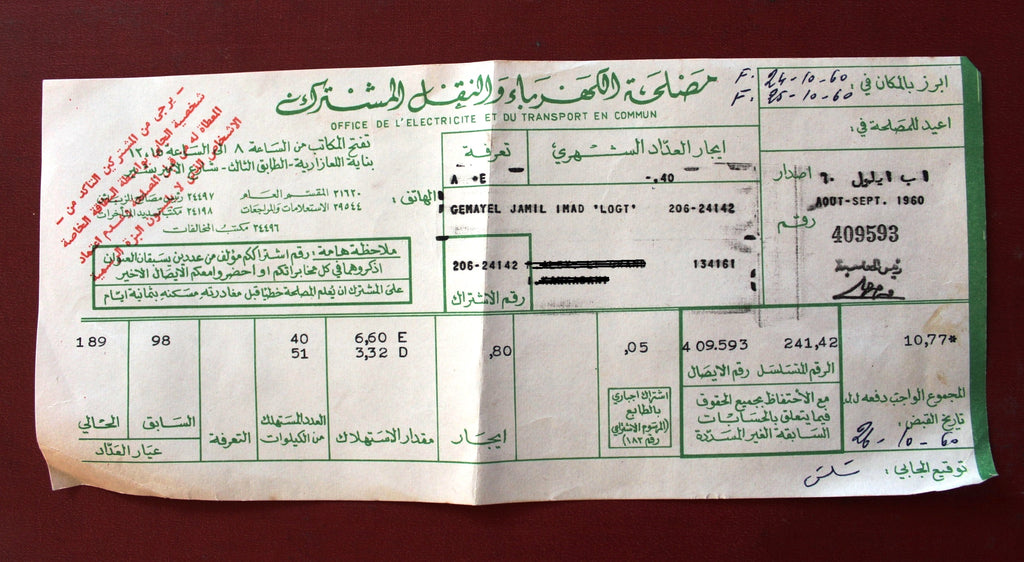 مصلحة الكهرباء والنقل المشترك
OFFICE DE L'ELECTRICITE ET DU TRANSPORT EN COMMUN
ابرز بالمكان في: F. 24-10-60
F. 25-10-60
اعيد للمصلحة في:
- يرجى من المشتركين التأكد من
شخصية الجابي بواسطة البطاقة الخاصة
تفتح المكاتب من الساعة ٨ الى الساعة ١٢،١٥
بناية اللعازارية - الطابق الثالث - شارع الامير بشير
الهاتف:
٢١٦٢٠ المقسم العام
٢٩٥٤٤ الاستعلامات والمراجعات
٢٤٤٩٧
٢٤١٩٨
٢٤٤٩٦ مكتب المخالفات
ملاحظة هامة: رقم اشتراككم مؤلف من عددين يسبقان العنوان
اذكروها في كل مخابراتكم او احضروا معكم الايصال الاخير
على المشترك ان يُعلم المصلحة خطيًا قبل مغادرته مسكنه بثمانية ايام
تعرفة
ايجار العدّاد الشهري
A E
-.40
GEMAYEL JAMIL IMAD "LOGT" 206-24142
206-24142
134161
رقم الاشتراك
اصدار اب ايلول ٦٠
AOUT-SEPT. 1960
رقم 409593
رئيس المحاسبة
189
98
40
51
6,60 E
3,32 D
,80
,05
409.593
241,42
10,77*
الرقم المتسلسل
رقم الايصال
الحالي
السابق
عيار العدّاد
التعرفة
العدد المستهلك
من الكيلوات
مقدار الاستهلاك
ايجار
اشتراك اجباري
بالطابع
(المرسوم الاشتراعي
رقم ١٨٢)
مع الاحتفاظ بجميع الحقوق
فيما يتعلق بالحسابات
السابقة الغير المسددة
المجموع الواجب دفعه ل.ل
تاريخ القبض:
26-10-60
توقيع الجابي: